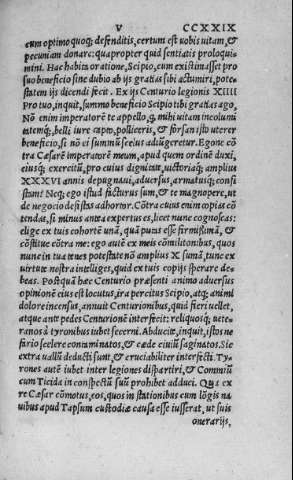 V CCXXIX
cum optimo quoq; defenditis, certum est uobis uitam, &
pecuniam donare: quapropter quid sentiatis proloqui-
mini. Hac habita oratione, Scipio, cum existimasset pro
suo beneficio sine dubio ab ijs gratias sibi actum iri, pote-
statem ijs dicendi fecit. Ex ijs Centurio legionis XIIII
Pro tuo, inquit, summo beneficio Scipio tibi gratias ago,
Nō enim imperatorē te appello, q, mihi uitam incolumi
tatemq;, belli iure capto, polliceris, & forsan isto uterer
beneficio, si nō ei summū scelus adiūgeretur. Egone cō
tra Cæsarē imperatorē meum, apud quem ordinē duxi,
eiusq; exercitū, pro cuius dignitate, uictoriaq; amplius
XXXVI annis depugnaui, aduersus, armatusq; consi
stam? Neq; ego istud facturus sum, & te magnopere, ut
de negocio desistas adhortor. Cōtra cuius enim copias cō
tendas, si minus antea expertus es, licet nunc cognoscas:
elige ex tuis cohortē unā, quā putas esse firmissimā, &
cōstitue cōtra me: ego autē ex meis cōmilitonibus, quos
nunc in tua tenes potestate nō amplius X sumā, tunc ex
uirtute nostra intelliges, quid ex tuis copijs sperare de-
beas. Postquā hæc Centurio præsenti animo aduersus
opinionē eius est locutus, ira percitus Scipio, atq; animi
dolore incensus, annuit Centurionibus, quid fieri uellet,
atque ante pedes Centurionē interficit: reliquosq; uete-
ranos à tyronibus iubet secerni. Abducite, inquit, istos ne
fario scelere contaminatos, & cæde ciuiū saginatos. Sic
extra uallū deducti sunt, & cruciabiliter interfecti. Ty-
rones autē iubet inter legiones dispartiri, & Cominiū
cum Ticida in conspectū suū prohibet adduci. Qua ex
re Cæsar cōmotus, eos, quos in stationibus cum lōgis na
uibus apud Tapsum custodiæ causa esse iusserat, ut suis
onerarijs,